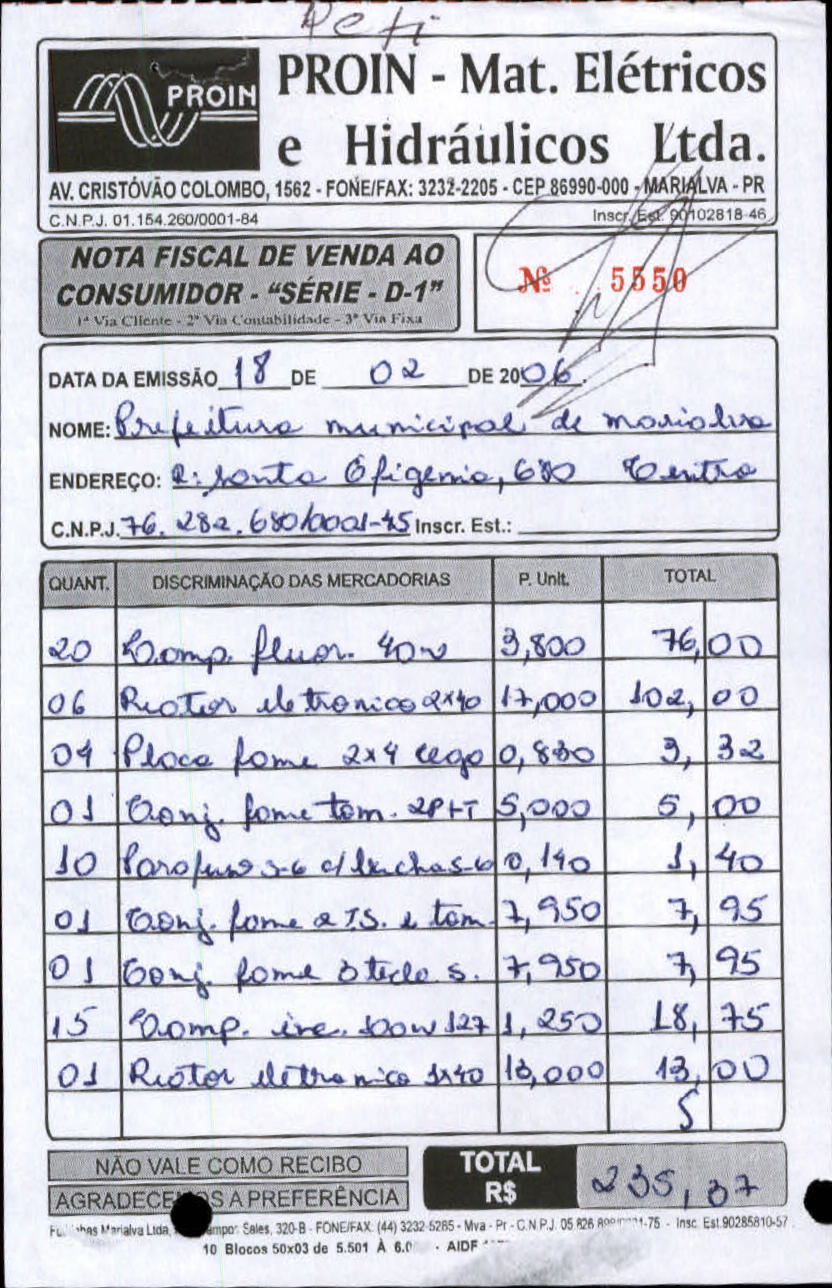 Peti
PROIN
PROIN - Mat. Elétricos
e Hidráulicos Ltda.
AV. CRISTÓVÃO COLOMBO, 1562 - FONE/FAX: 3232-2205 - CEP 86990-000 - MARIALVA - PR
C.N.P.J. 01.154.260/0001-84 Inscr. Est. 90102818-46
NOTA FISCAL DE VENDA AO
CONSUMIDOR - “SÉRIE - D-1”
1ª Via Cliente - 2ª Via Contabilidade - 3ª Via Fixa
Nº 5550
DATA DA EMISSÃO 18 DE 02 DE 2006.
NOME: Prefeitura municipal de marialva
ENDEREÇO: R: Santa Efigenia, 680 Centro
C.N.P.J. 76.282.680/0001-45 Inscr. Est.:
QUANT. DISCRIMINAÇÃO DAS MERCADORIAS P. Unit. TOTAL
20 Lamp. fluor. 40w 3,800 76,00
06 Reator eletronico 2x40 17,000 102,00
04 Placa fame 2x4 cega 0,830 3,32
01 Conj. fame tom. 2P+T 5,000 5,00
10 Parafuso s-6 c/ buchas-6 0,140 1,40
01 Conj. fame 2 T.S. e tom. 7,950 7,95
01 Conj. fame 3 tecla s. 7,950 7,95
15 Lamp. inc. 100w 127 1,250 18,75
01 Reator eletronico 1x40 13,000 13,00
NÃO VALE COMO RECIBO
AGRADECEMOS A PREFERÊNCIA
TOTAL
R$ 235,37
Marialva Ltda, Sales, 320-B - FONE/FAX: (44) 3232-5265 - Mva - Pr - C.N.P.J. 05.826 -75 - Insc. Est.90285810-57
10 Blocos 50x03 de 5.501 À - AIDF